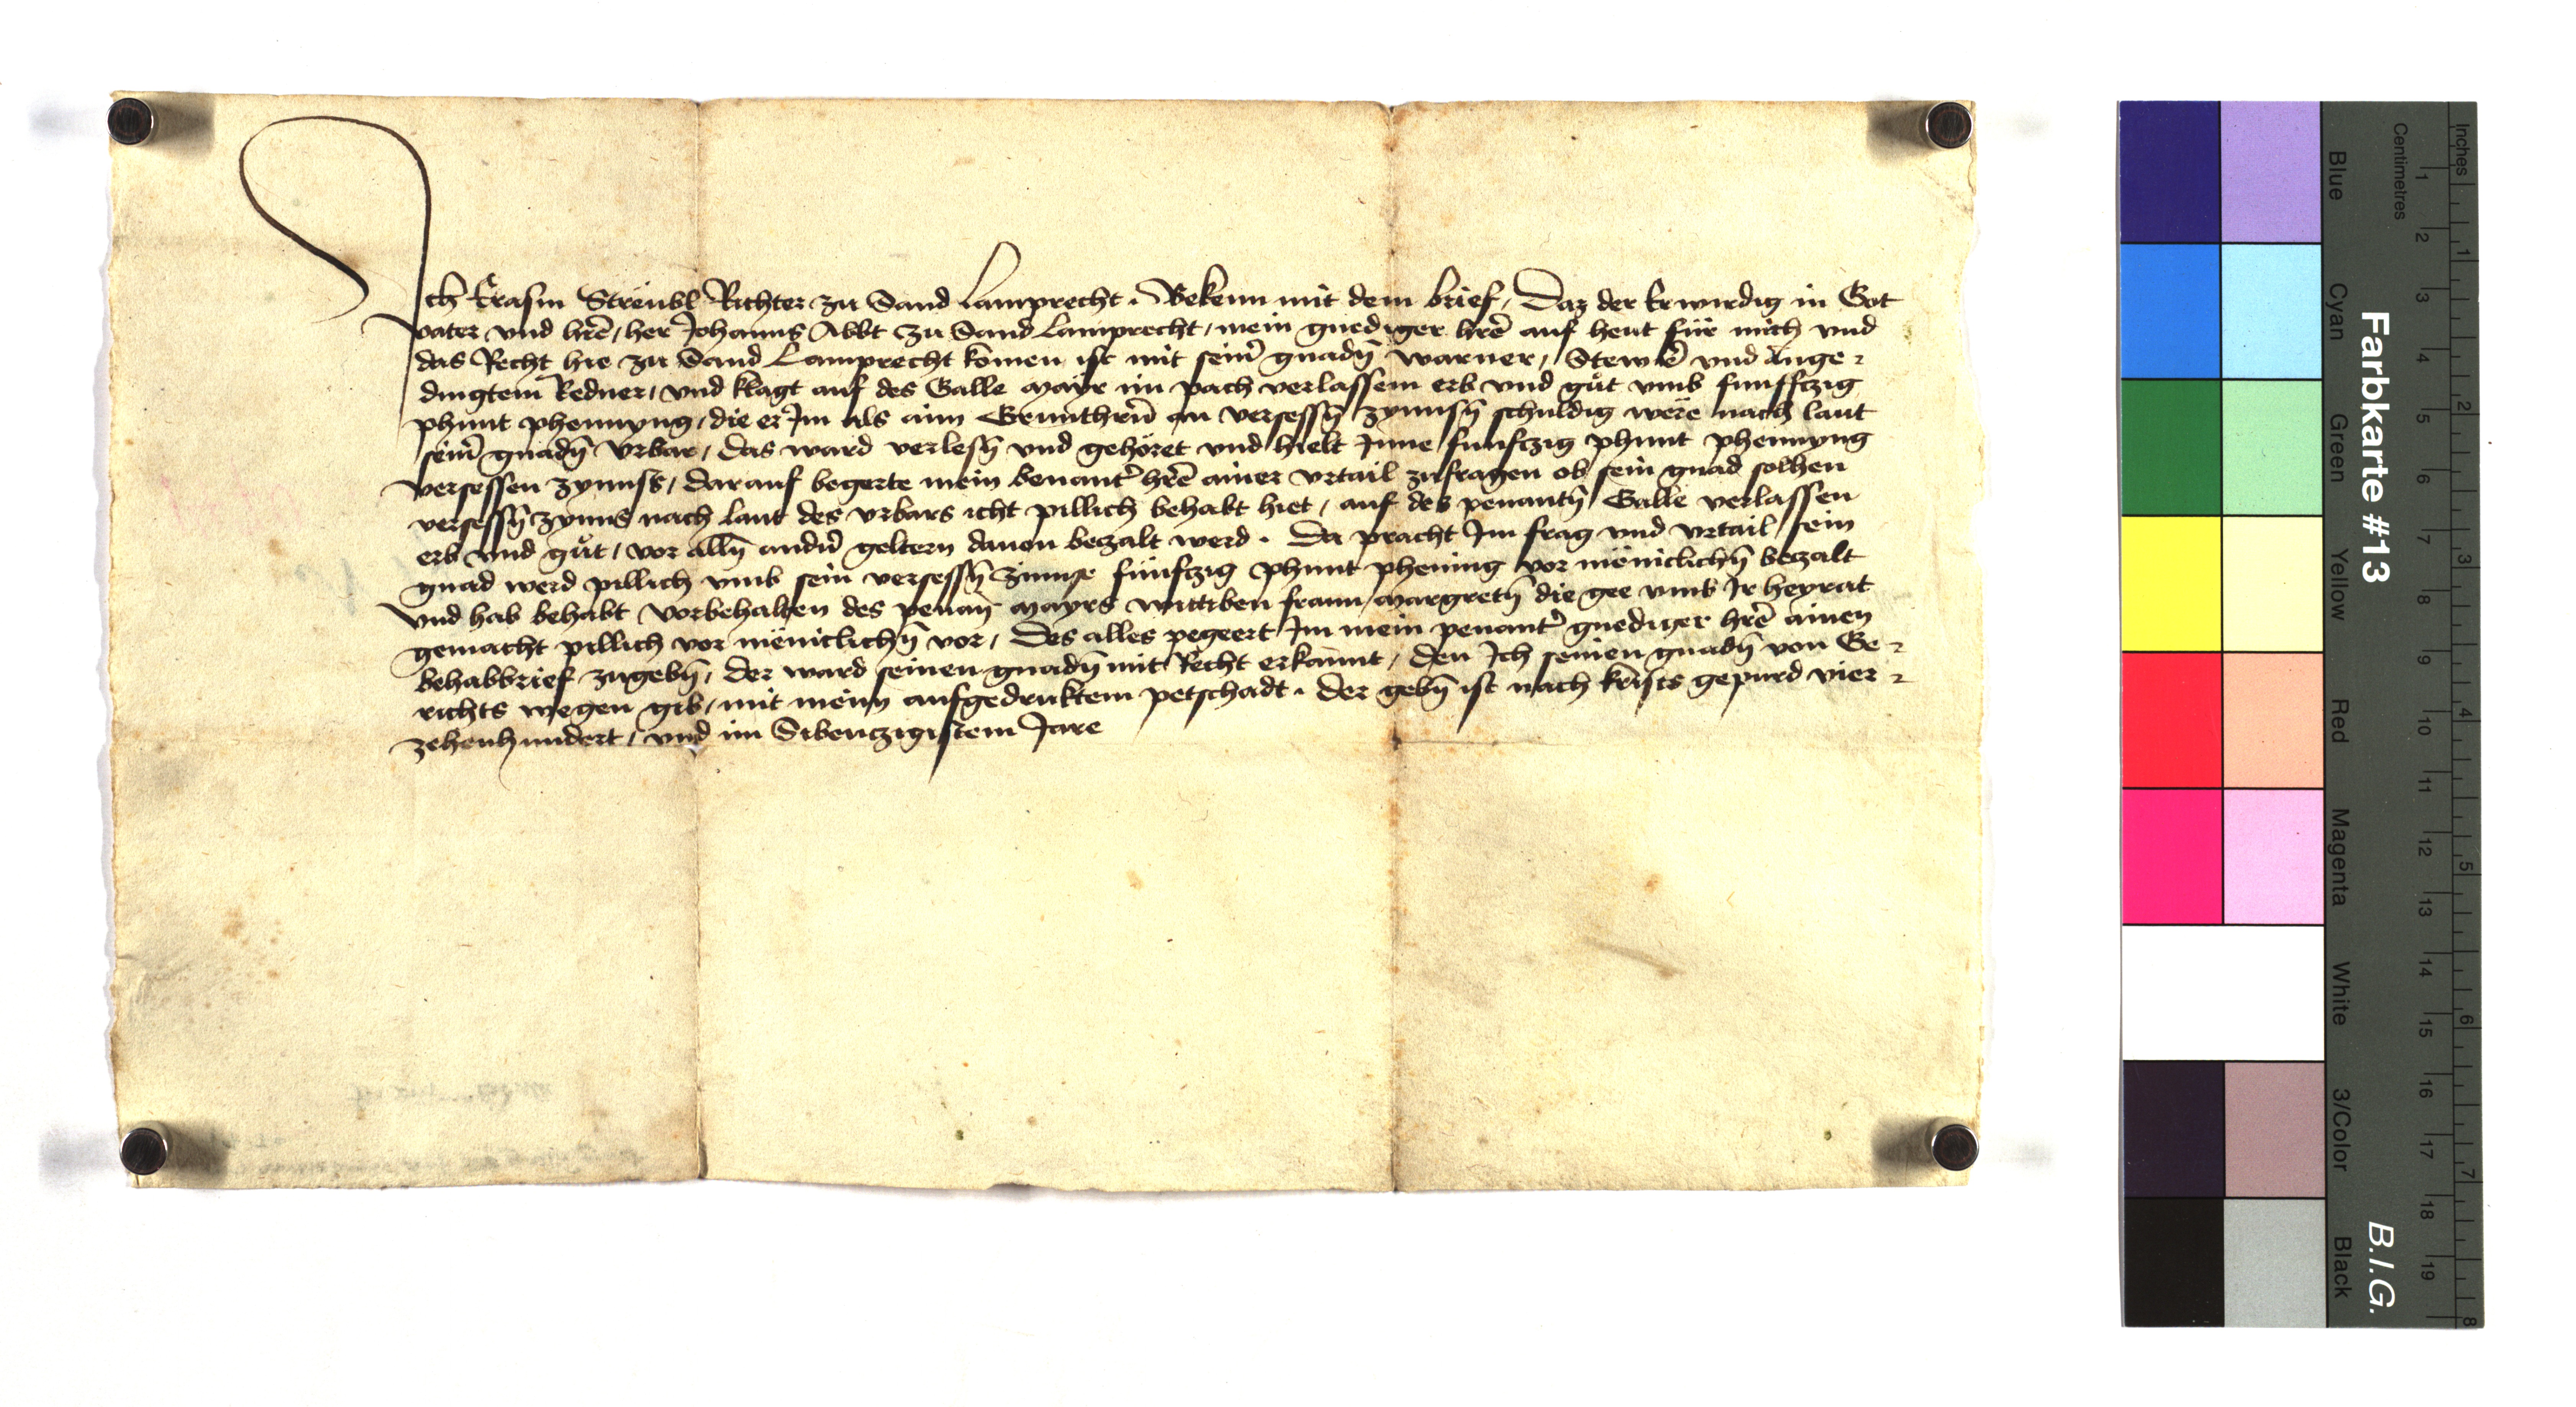 Ich Erasm Strëubl Richter zu Sand Lamprecht . Bekenn mit dem brief / Daz der Erwirdig in Got
vater vnd hrē / her Johanns Abbt zu Sand Lamprecht / mein gnediger hrē auf heut für mich vnd
das Recht hie zu Sand Lamprecht komen ist mit seim̄ gnadn̄ warner / Stewrē vnd Ange⸗
dingtem Redner / vnd klagt auf des Galle Mayr im pach verlassem erb vnd gůt vmb funffczig
phunt phennyng / die er Im als aim Grunthrn̄ an versessn̄ zynnsn̄ schuldig were nach laut
seim̄ gnadn̄ vrbar / Das ward verlesn̄ vnd gehöret vnd hielt Inne funfczig phunt phennyng
versessen zynnss / darauf begerte mein benant̄ hrē ainer vrtail zufragen ob sein gnad solhen
versessn̄ zynns nach laut des vrbars icht pillich behabt hiet / auf des penantn̄ Galle verlassen
erb vnd gůt / vor alln̄ andn̄ geltern dauon beczalt werd . Da pracht Im frag vnd vrtail / sein
gnad werd pillich vmb sein versessn̄ zinnse fünfczig phunt phening vor mëniclichn̄ beczalt
vnd hab behabt / vorbehalten des penan̄ Mayrs wittiben fraun Margretn̄ die gee vmb Ir heyrat
gemacht pillich vor mëniclichn̄ vor / Des alles pegeert Im mein penant̄ gnediger hrē ainen
behabbrief zugebn̄ / der ward seinen gnadn̄ mit Recht erkannt / den Ich seinen gnadn̄ von Ge⸗
richts wegen gib / mit meim aufgedruktem petschadt . Der gebn̄ ist nach krists gepurd vier⸗
zehenhundert / vnd im Sibenczigistem Jare
Farbkarte #13
B.I.G.
Inches
1 2 3 4 5 6 7 8
Centimetres
1 2 3 4 5 6 7 8 9 10 11 12 13 14 15 16 17 18 19
Blue
Cyan
Green
Yellow
Red
Magenta
White
3/Color
Black